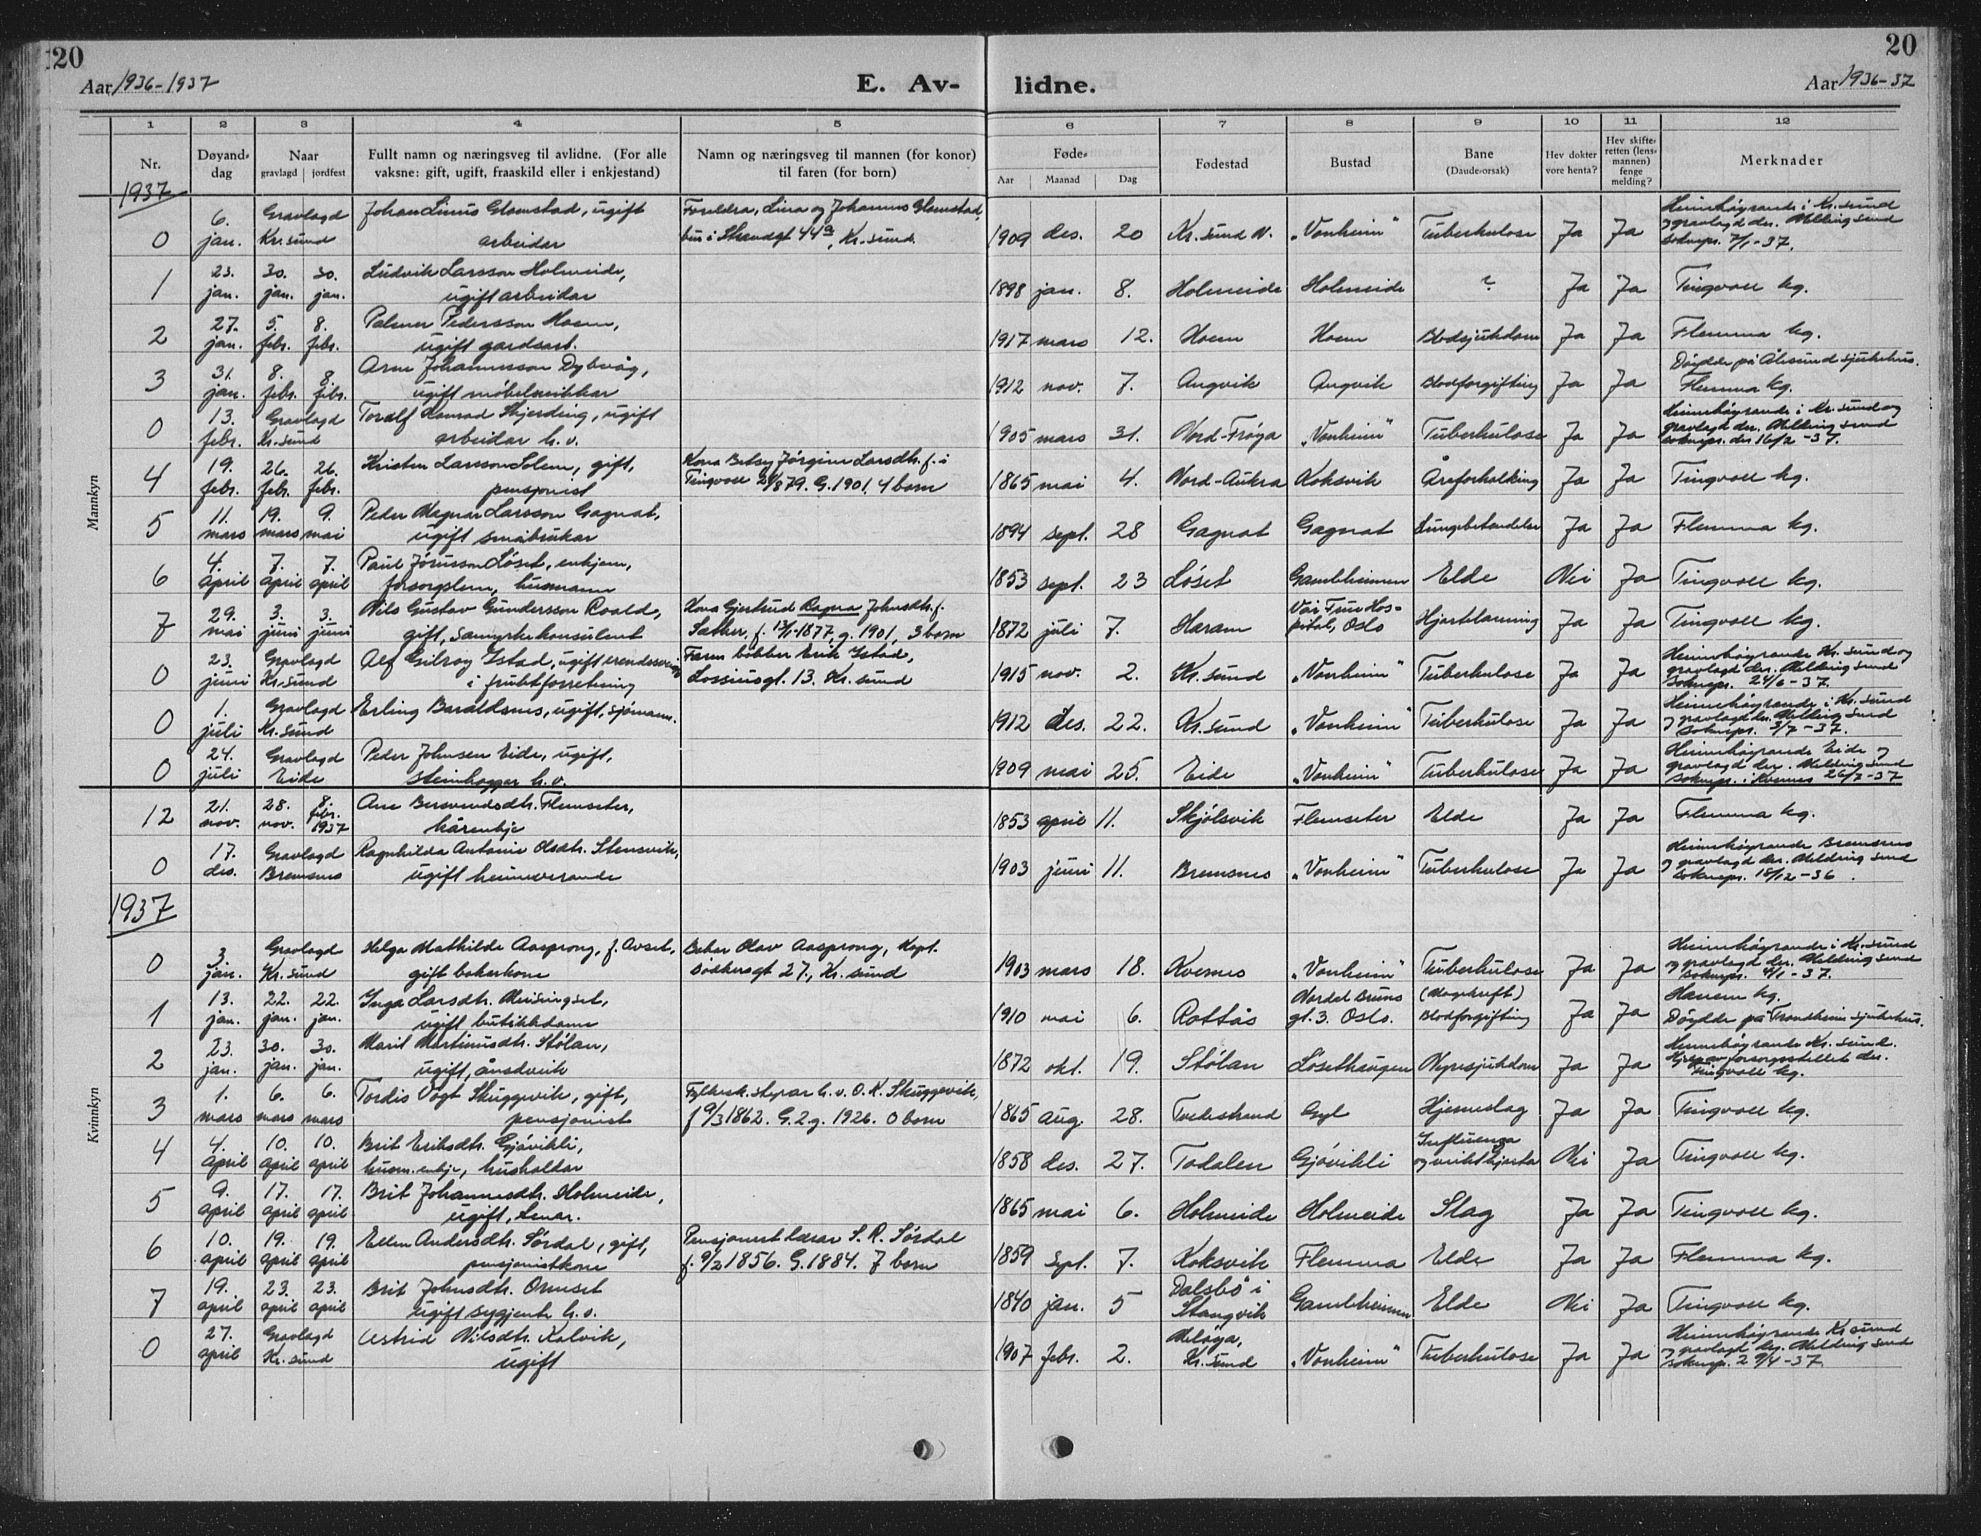 20
20
Aar 1936-1937
E. Av-
lidne.
Aar 1936-37
1 2 3 4 5 6 7 8 9 10 11 12
Nr. Døyand-dag Naar gravlagd jordfest Fullt namn og næringsveg til avlidne. (For alle vaksne: gift, ugift, fraaskild eller i enkjestand) Namn og næringsveg til mannen (for konor) til faren (for born) Føde- Aar Maanad Dag Fødestad Bustad Bane (Daude-orsak) Hev dokter vore henta? Hev skifte-retten (lens-mannen) fenge melding? Merknader
Mannkyn
1937
0 6. jan. Gravlagd Kr.sund Johan Linus Glamstad, ugift arbeidar Foreldra, Lina og Johannes Glamstad bur i Strandgt 44a, Kr.sund. 1909 des. 20 Kr.sund N. „Vonheim" Tuberkulose Ja Ja Heimhøgrande i Kr.sund og gravlagd der. Melding send soknepr. 7/1-37.
1 23. jan. 30. jan. 30. jan. Ludvik Larsson Holmeide, ugift arbeidar 1898 jan. 8. Holmeide Holmeide ? Ja Ja Tingvoll kg.
2 27. jan. 5. febr. 8. febr. Palmer Pedersson Hoem, ugift gardsarb. 1917 mars 12. Hoem Hoem Blodsjukdom Ja Ja Flemma kg.
3 31. jan. 8. febr. 8. febr. Arne Johannesson Dybvåg, ugift møbelsnikkar 1912 nov. 7. Angvik Angvik Blodforgifting Ja Ja Døydde på Ålesund sjukehus. Flemma kg.
0 13. febr. Gravlagd Kr.sund Toralf Konrad Skjerding, ugift arbeidar h.v. 1905 mars 31. Nord-Frøya „Vonheim" Tuberkulose Ja Ja Heimhøgrande i Kr.sund og gravlagd der. Melding send soknepr. der 16/2-37.
4 19. febr. 26. febr. 26. febr. Kristen Larsson Solem, gift, pensjonist Kona Betsy Jørgine Larsdtr. f. i Tingvoll 1879. G. 1901, 4 born 1865 mai 4. Nord-Aukra Koksvik Åreforkalking Ja Ja Tingvoll kg.
5 11. mars 19. mars 9. mai Peder Magnar Larsson Gagnat, ugift småbrukar 1894 sept. 28 Gagnat Gagnat Lungebetendelse Ja Ja Flemma kg.
6 4. april 7. april 7. april Paul Jørusson Løset, enkjem., forsorgslem, husmann 1853 sept. 23 Løset Gamleheimen Elde Nei Ja Tingvoll kg.
7 29. mai 3. juni 3. juni Nils Gustav Gundersson Roald, gift, samyrkekonsulent Kona Gjertrud Ragna Johnsdtr. f. Sæther, f. 1877, g. 1901, 3 born 1872 juli 7. Haram Vår Frue Hospital, Oslo Hjartelamning Ja Ja Tingvoll kg.
0 23. juni Gravlagd Kr.sund Alf Gilroy Istad, ugift erendssvein i fruktforretning Faren bøkker Erik Istad, Lossiusgt. 13. Kr.sund 1915 nov. 2. Kr.sund „Vonheim" Tuberkulose Ja Ja Heimhøgrande Kr.sund og gravlagd der. Melding send soknepr. 24/6-37.
0 1. juli Gravlagd Kr.sund Erling Baraldsnes, ugift, sjømann. 1912 des. 22. Kr.sund „Vonheim" Tuberkulose Ja Ja Heimhøgrande i Kr.sund og gravlagd der. Melding send soknepr. 3/7-37.
0 24. juli Gravlagd Eide Peder Johnsen Eide, ugift, steinhogger h.v. 1909 mai 25. Eide „Vonheim" Tuberkulose Ja Ja Heimhøgrande Eide og gravlagd der. Melding send soknepr. i Kvernes 26/7-37
Kvinnkyn
12 21. nov. 28. nov. 8. febr. 1937 Ane Bersvendsdtr. Flemseter, kårenkje 1853 april 11. Skjølsvik Flemseter Elde Ja Ja Flemma kg.
0 17. des. Gravlagd Bremsnes Ragnhilda Antonie Olsdtr. Stensvik, ugift heimeverande 1903 juni 11. Bremsnes „Vonheim" Tuberkulose Ja Ja Heimhøgrande Bremsnes og gravlagd der. Melding send soknepr. 18/12-36.
1937
0 3. jan. Gravlagd Kr.sund Helga Mathilde Aasprong, f. Avset, gift bakerkone Baker Olav Aasprong, Kapt. Bødkersgt 27, Kr.sund 1903 mars 18. Kvernes „Vonheim" Tuberkulose Ja Ja Heimhøgrande i Kr.sund og gravlagd der. Melding send soknepr. 4/1-37.
1 13. jan. 22. jan. 22. jan. Inga Larsdtr. Meisingset, ugift butikkdame 1910 mai 6. Rottås Nordal Bruns gt. 3. Oslo. (Magekreft) Blodforgifting Ja Ja Hanem kg. Døydde på Trondheim sjukehus.
2 23. jan. 30. jan. 30. jan. Marit Martinusdtr. Stølan, ugift, åndsveik 1872 okt. 19. Stølan Løsethaugen Nyresjukdom Ja Ja Heimehøgrande Kr.sund. der. Tingvoll kg.
3 1. mars 6. mars 6. mars Tordis Vogt Skuggevik, gift, pensjonist Fylkessk.styrar h.v. O. K. Skuggevik, f 9/3 1862. G. 2.g. 1926. 0 born 1865 aug. 28. Tvedestrand Gyl Hjerneslag Ja Ja Tingvoll kg.
4 4. april 10. april 10. april Brit Eriksdtr. Gjøvikli, husm.enkje, husholdar 1858 des. 27. Todalen Gjøvikli Influenza og veikt hjarta Nei Ja Tingvoll kg.
5 9. april 17. april 17. april Brit Johannesdtr. Holmeide, ugift, 1865 mai 6. Holmeide Holmeide Slag Ja Ja Tingvoll kg.
6 10. april 19. april 19. april Ellen Andersdtr. Sørdal, gift, pensjonistkone Pensjonert lærar S. R. Sørdal f. 9/2 1856. G. 1884. 7 born 1859 sept. 7. Koksvik Flemma Elde Ja Ja Flemma kg.
7 19. april 23. april 23. april Brit Johnsdtr. Ormset ugift sygjente h.v. 1840 jan. 5 Dalsbø i Stangvik Gamleheimen Elde Nei Ja Tingvoll kg.
0 27. april Gravlagd Kr.sund Astrid Nilsdtr. Kalvik, ugift 1907 febr. 2. Meløya, Kr.sund „Vonheim" Tuberkulose Ja Ja Heimhøgrande Kr.sund og gravlagd der. Melding send soknepr. 29/4-37.